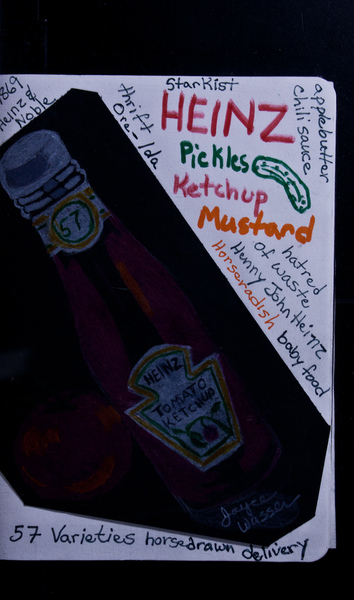 1869
Heinz &
Noble
thrift
Ore-Ida
StarKist
HEINZ
applebutter
chili sauce
Pickles
Ketchup
Mustard
hatred
of waste
Henny John Heinz
Horseradish
baby food
57
HEINZ
TOMATO
KETCHUP
Joyce
Wasser
57 Varieties horsedrawn delivery